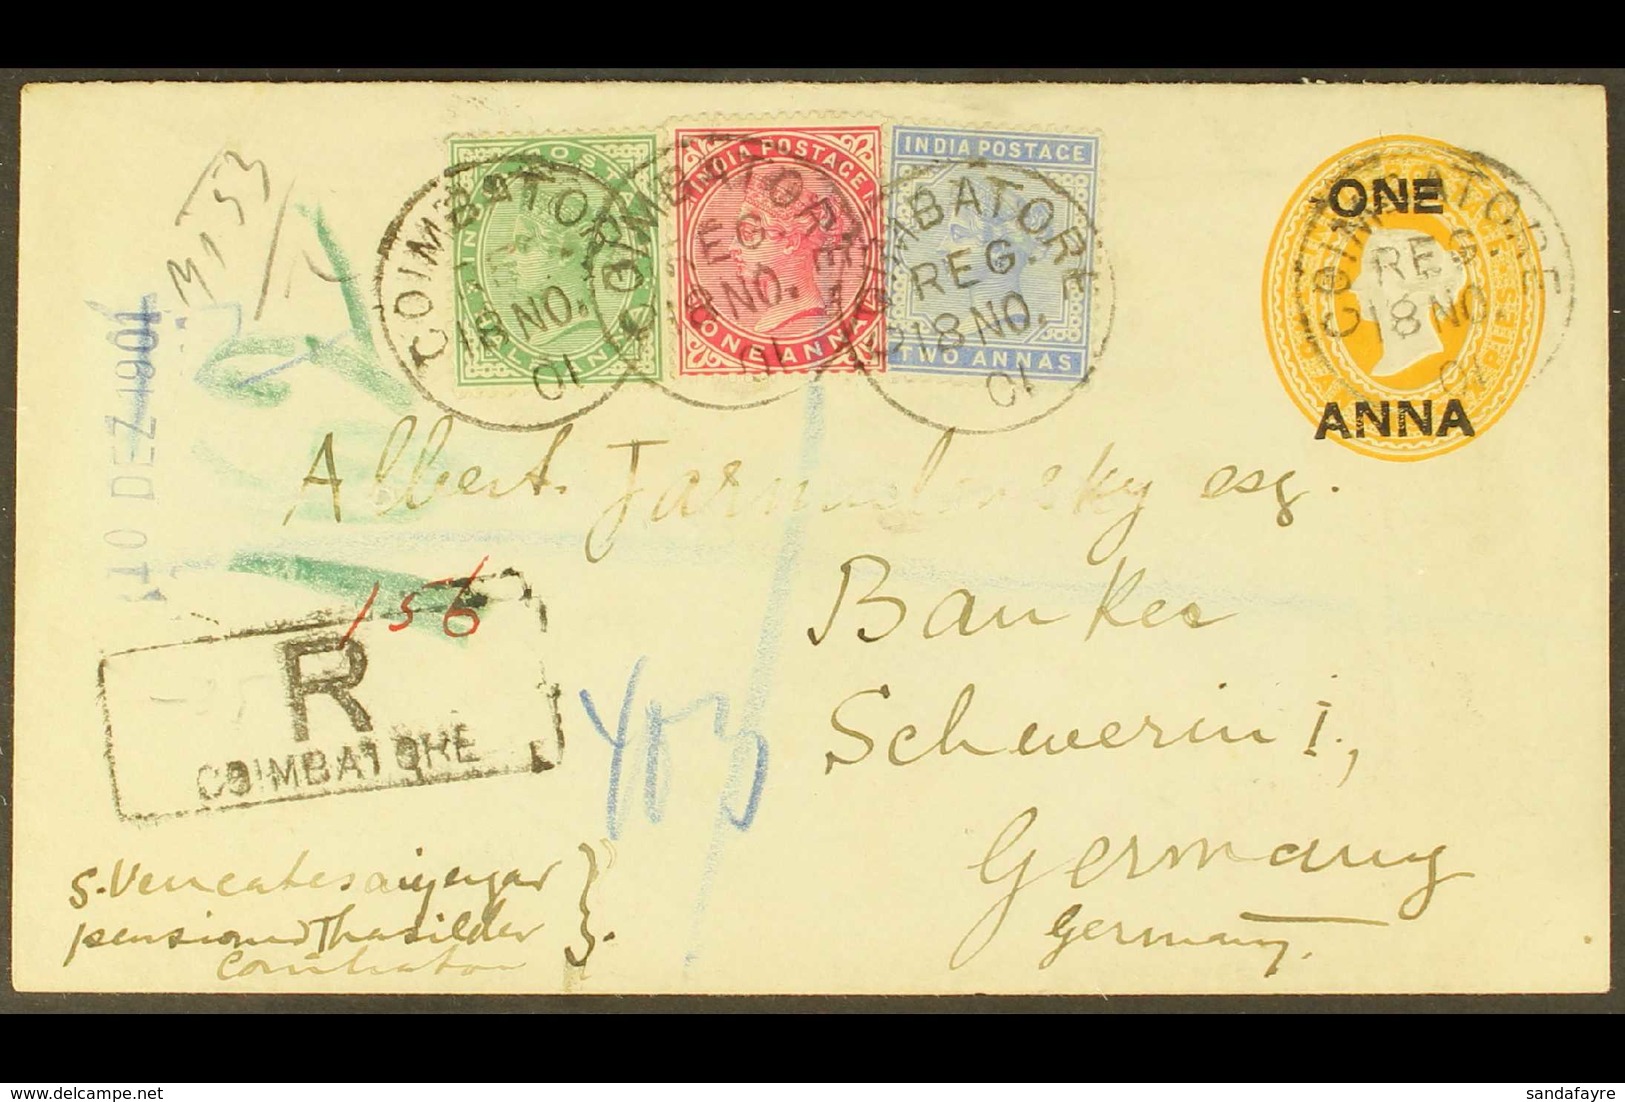 M153
INDIA POSTAGE
INDIA POSTAGE
ONE
COIMBATORE
REG.
18 NO.
01
COIMBATORE
REG.
18 NO.
01
COIMBATORE
REG.
18 NO.
01
COIMBATORE
REG.
18 NO.
01
HALF ANNA
ONE ANNA
TWO ANNAS
ANNA
10 DEZ 1901
Albert esq.
156
Banker
R
COIMBATORE
Schwerin i,
Germany
Germany.
S. Vencatesaiyengar
pensioned Thasildar
Coimbatore
sandafayre